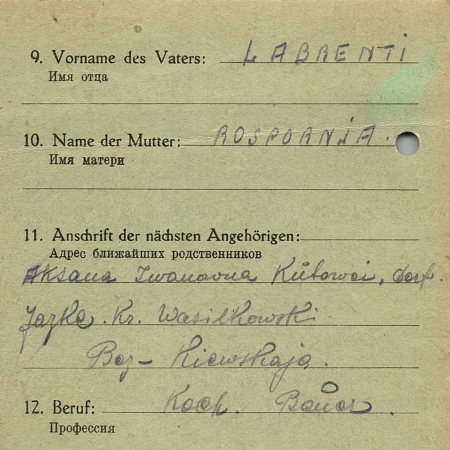 9. Vorname des Vaters: LABRENTI
Имя отца
10. Name der Mutter: ROSPORNJA.
Имя матери
11. Anschrift der nächsten Angehörigen:
Адрес ближайших родственников
Aksana Iwanowna Kubowei, Dorf.
Jazke. Kr. Wasilkowski
Bez- Kiewskaja.
12. Beruf: Koch. Bauer.
Профессия